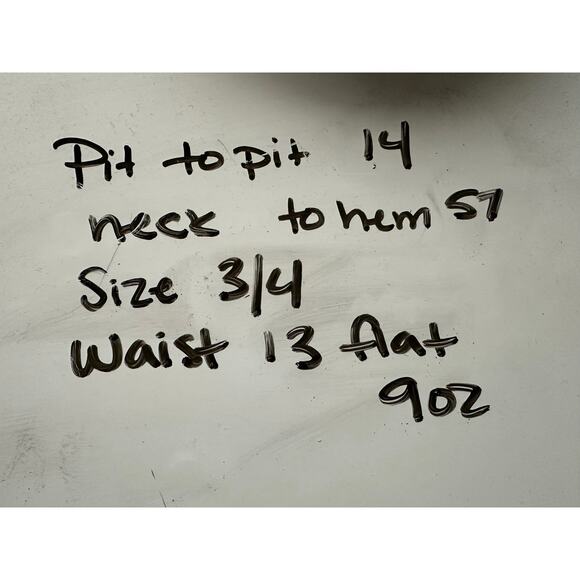 Pit to pit 14
neck to hem 57
Size 3/4
Waist 13 flat
9oz